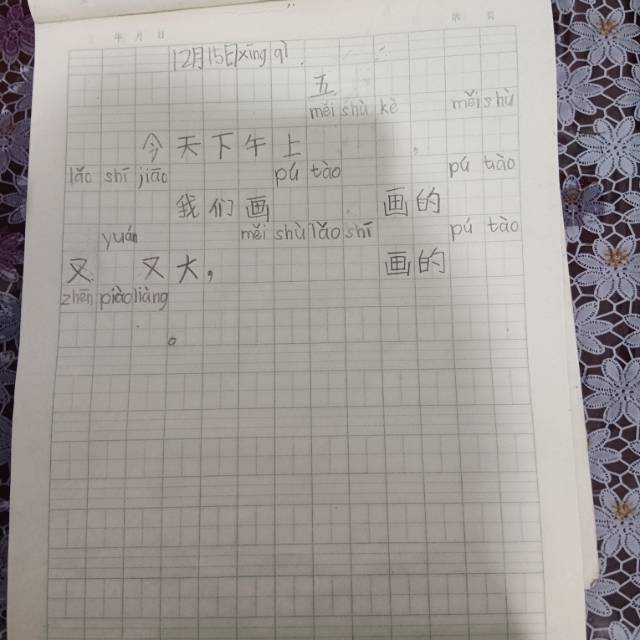 年 月 日
第 页
12月15日xīng qī
五
měi shù kè měi shù
今天下午上
lǎo shī jiāo pú tào pú tào
我们画 画的
yuán měi shù lǎo shī pú tào
又 又大, 画的
zhēn piào liàng
。